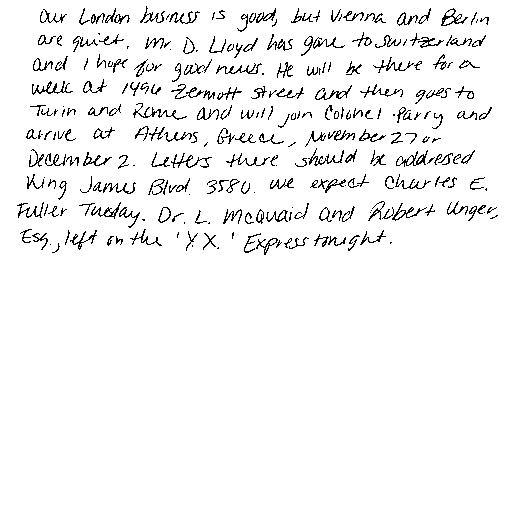 Our London business is good, but Vienna and Berlin
are quiet. Mr. D. Lloyd has gone to Switzerland
and I hope for good news. He will be there for a
week at 1496 Zermott Street and then goes to
Turin and Rome and will join Colonel Parry and
arrive at Athens, Greece, November 27 or
December 2. Letters there should be addressed
King James Blvd. 3580. We expect Charles E.
Fuller Tuesday. Dr. L. McQuaid and Robert Unger,
Esq., left on the 'Y.X.' Express tonight.